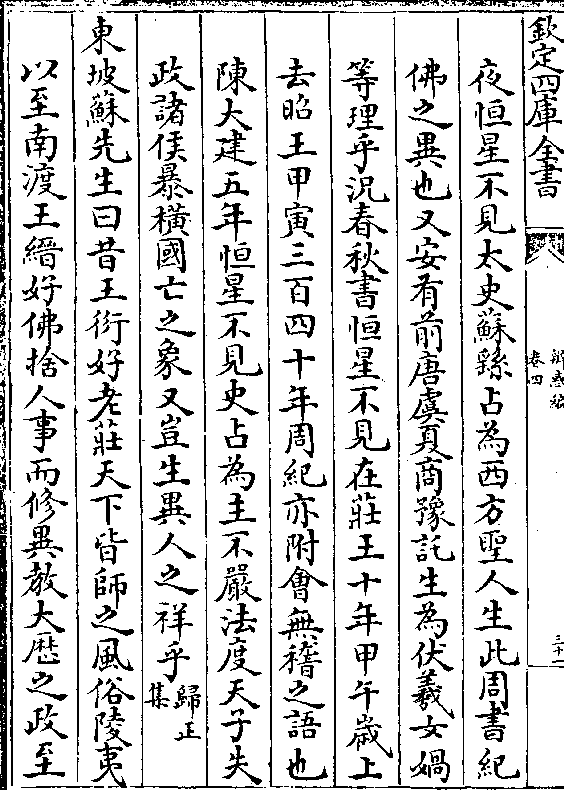 欽定四庫全書
辨惑編
卷四
三十一
夜恒星不見太史蘇繇占為西方聖人生此周書紀
佛之異也又安有前唐虞夏商豫託生為伏羲女媧
等理乎況春秋書恒星不見在莊王十年甲午歲上
去昭王甲寅三百四十年周紀亦附會無稽之語也
陳大建五年恒星不見史占為主不嚴法度天子失
政諸侯暴橫國亡之象又豈生異人之祥乎歸正
集
東坡蘇先生曰昔王衍好老莊天下皆師之風俗陵夷
以至南渡王縉好佛捨人事而修異教大厯之政至